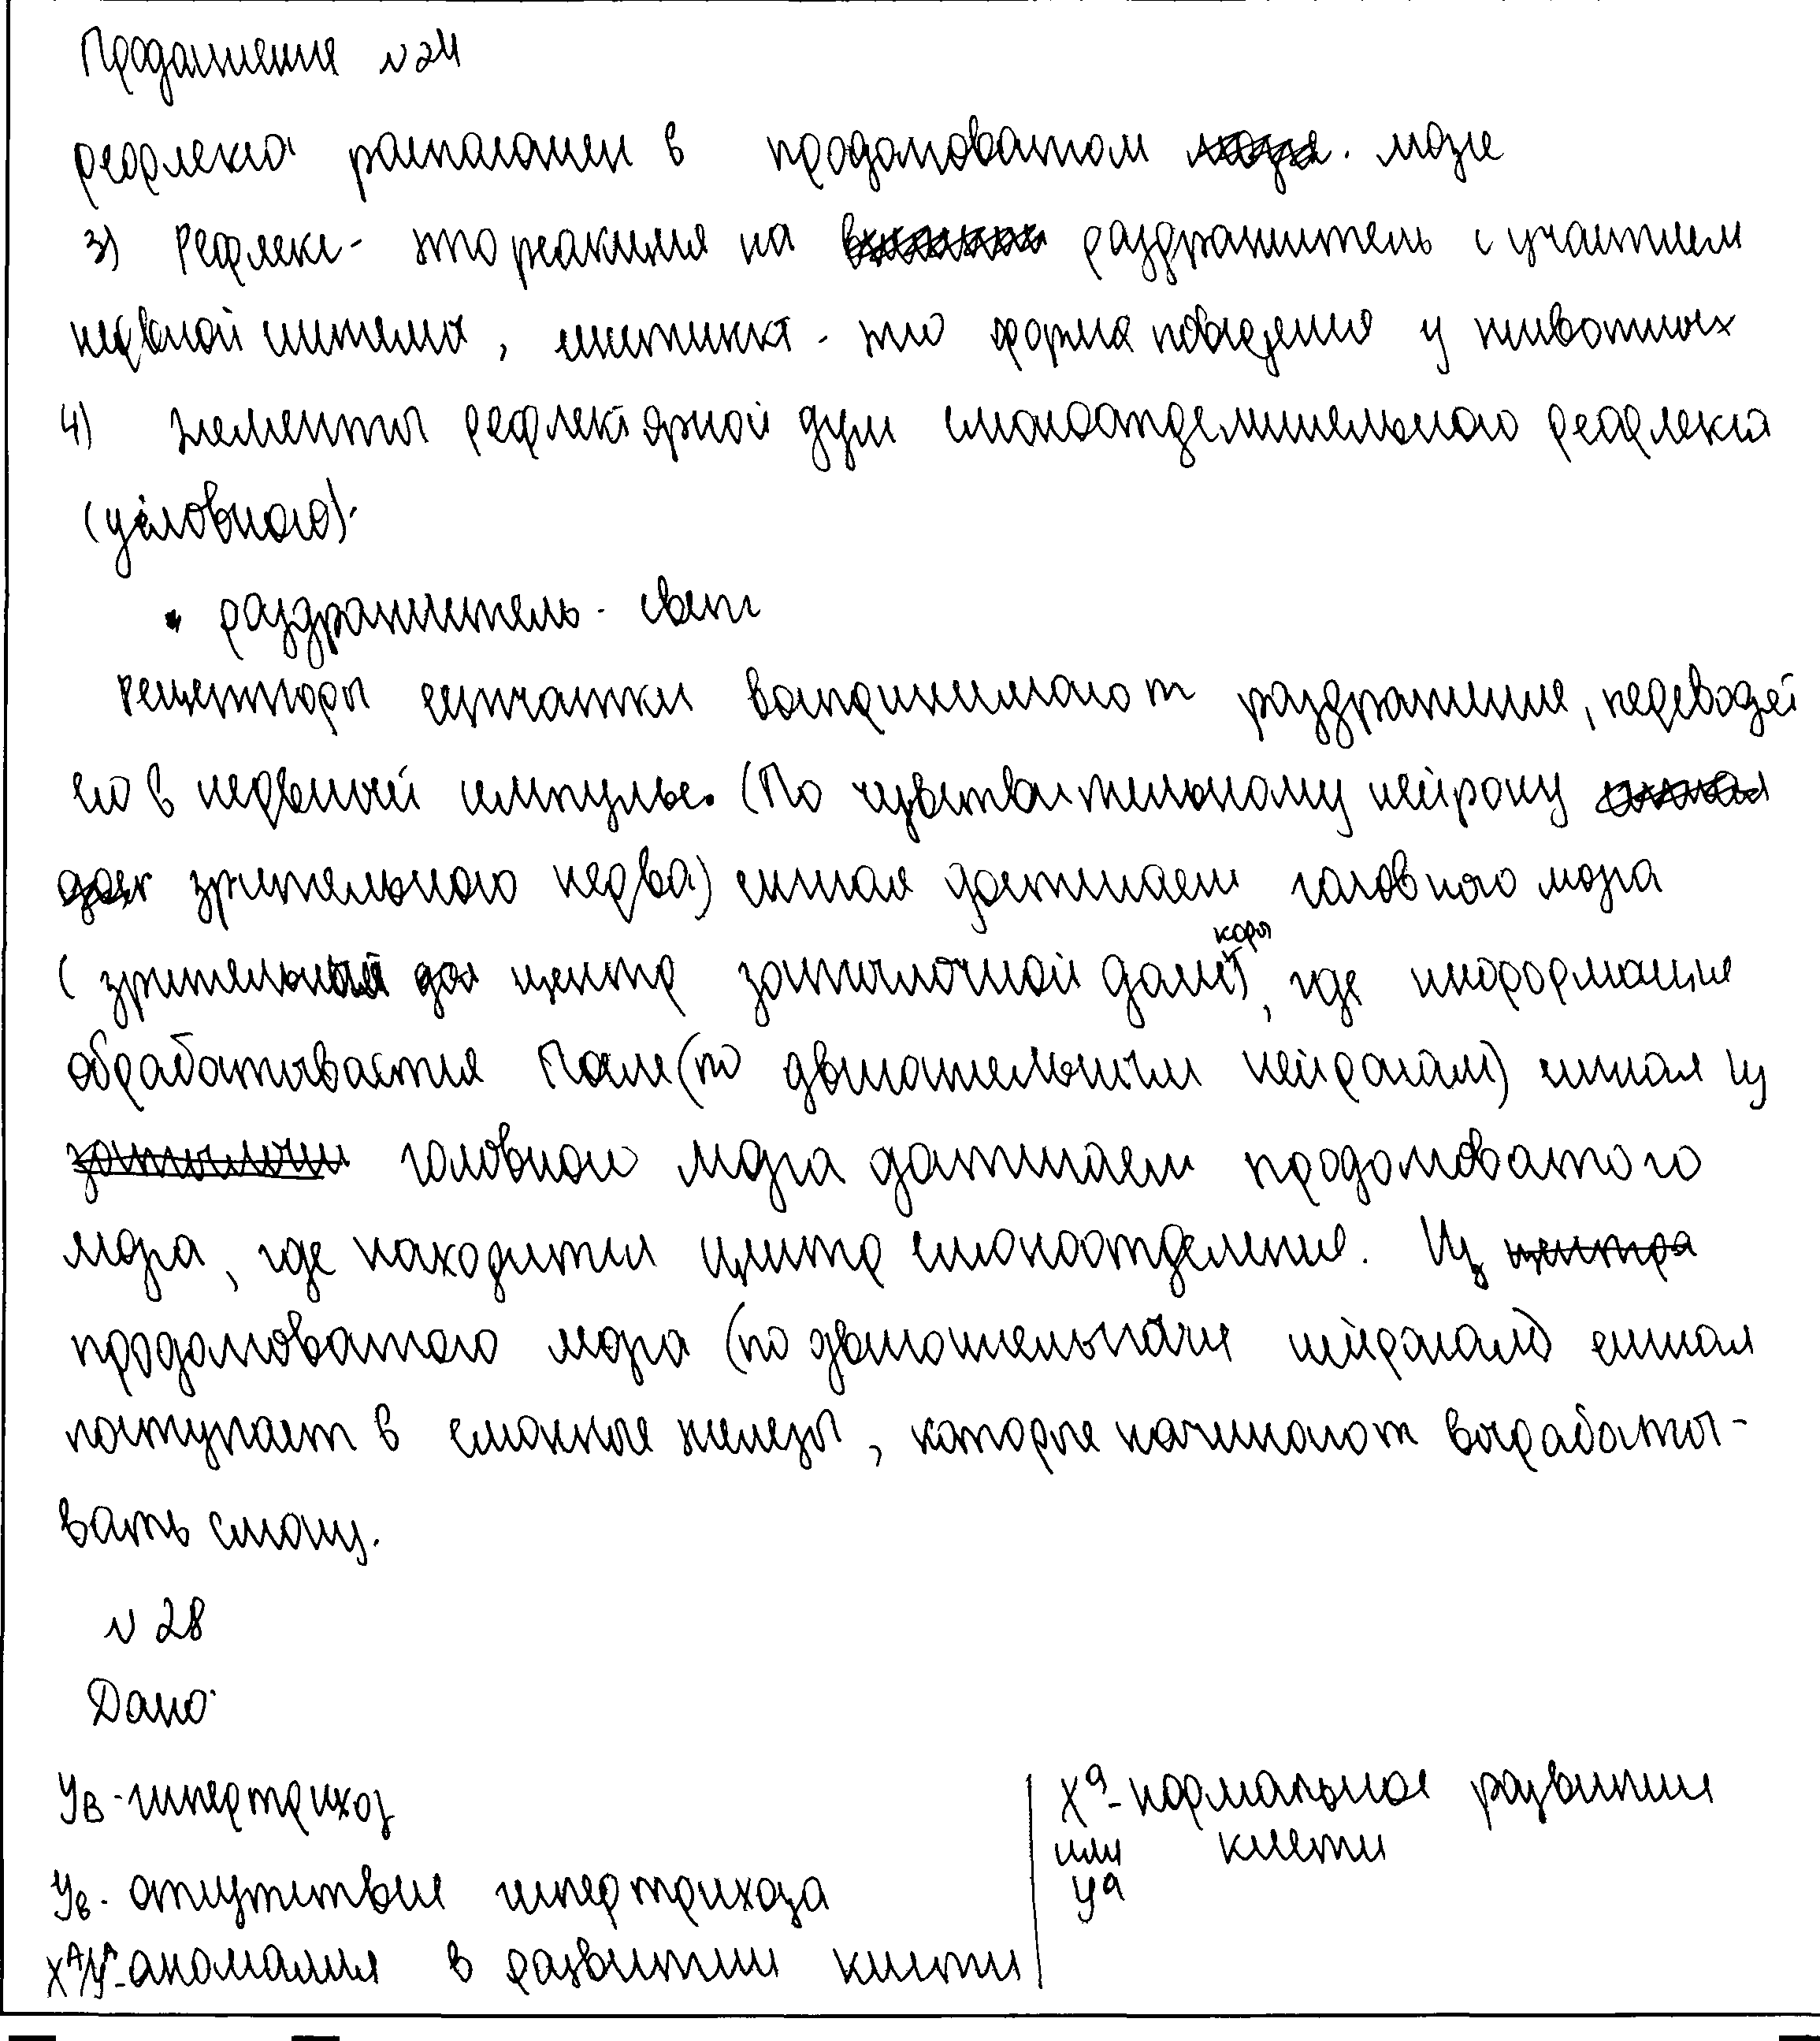 Продолжение №24
рефлекса расположен в продолговатом мозге
3) Рефлекс - это реакция на раздражитель с участием
нервной системы, инстинкт - это форма поведения у животных
4) Элементы рефлекторной дуги слюноотделительного рефлекса
(условного):
• раздражитель - свет
Рецепторы сетчатки воспринимают раздражение, переводя
его в нервный импульс. (По чувствительному нейрону
зрительного нерва) сигнал достигает головного мозга
(зрительный центр затылочной доли коры), где информация
обрабатывается После (по двигательным нейронам) сигнал из
головного мозга достигает продолговатого
мозга, где находится центр слюноотделения. Из
продолговатого мозга (по двигательным нейронам) сигнал
поступает в слюнные железы, которые начинают вырабаты-
вать слюну.
№ 28
Дано:
Yᴮ - гипертрихоз
Yᵇ - отсутствие гипертрихоза
Xᴬ/Yᴬ - аномалия в развитии кисти
Xᵃ - нормальное развитие
или кисти
Yᵃ